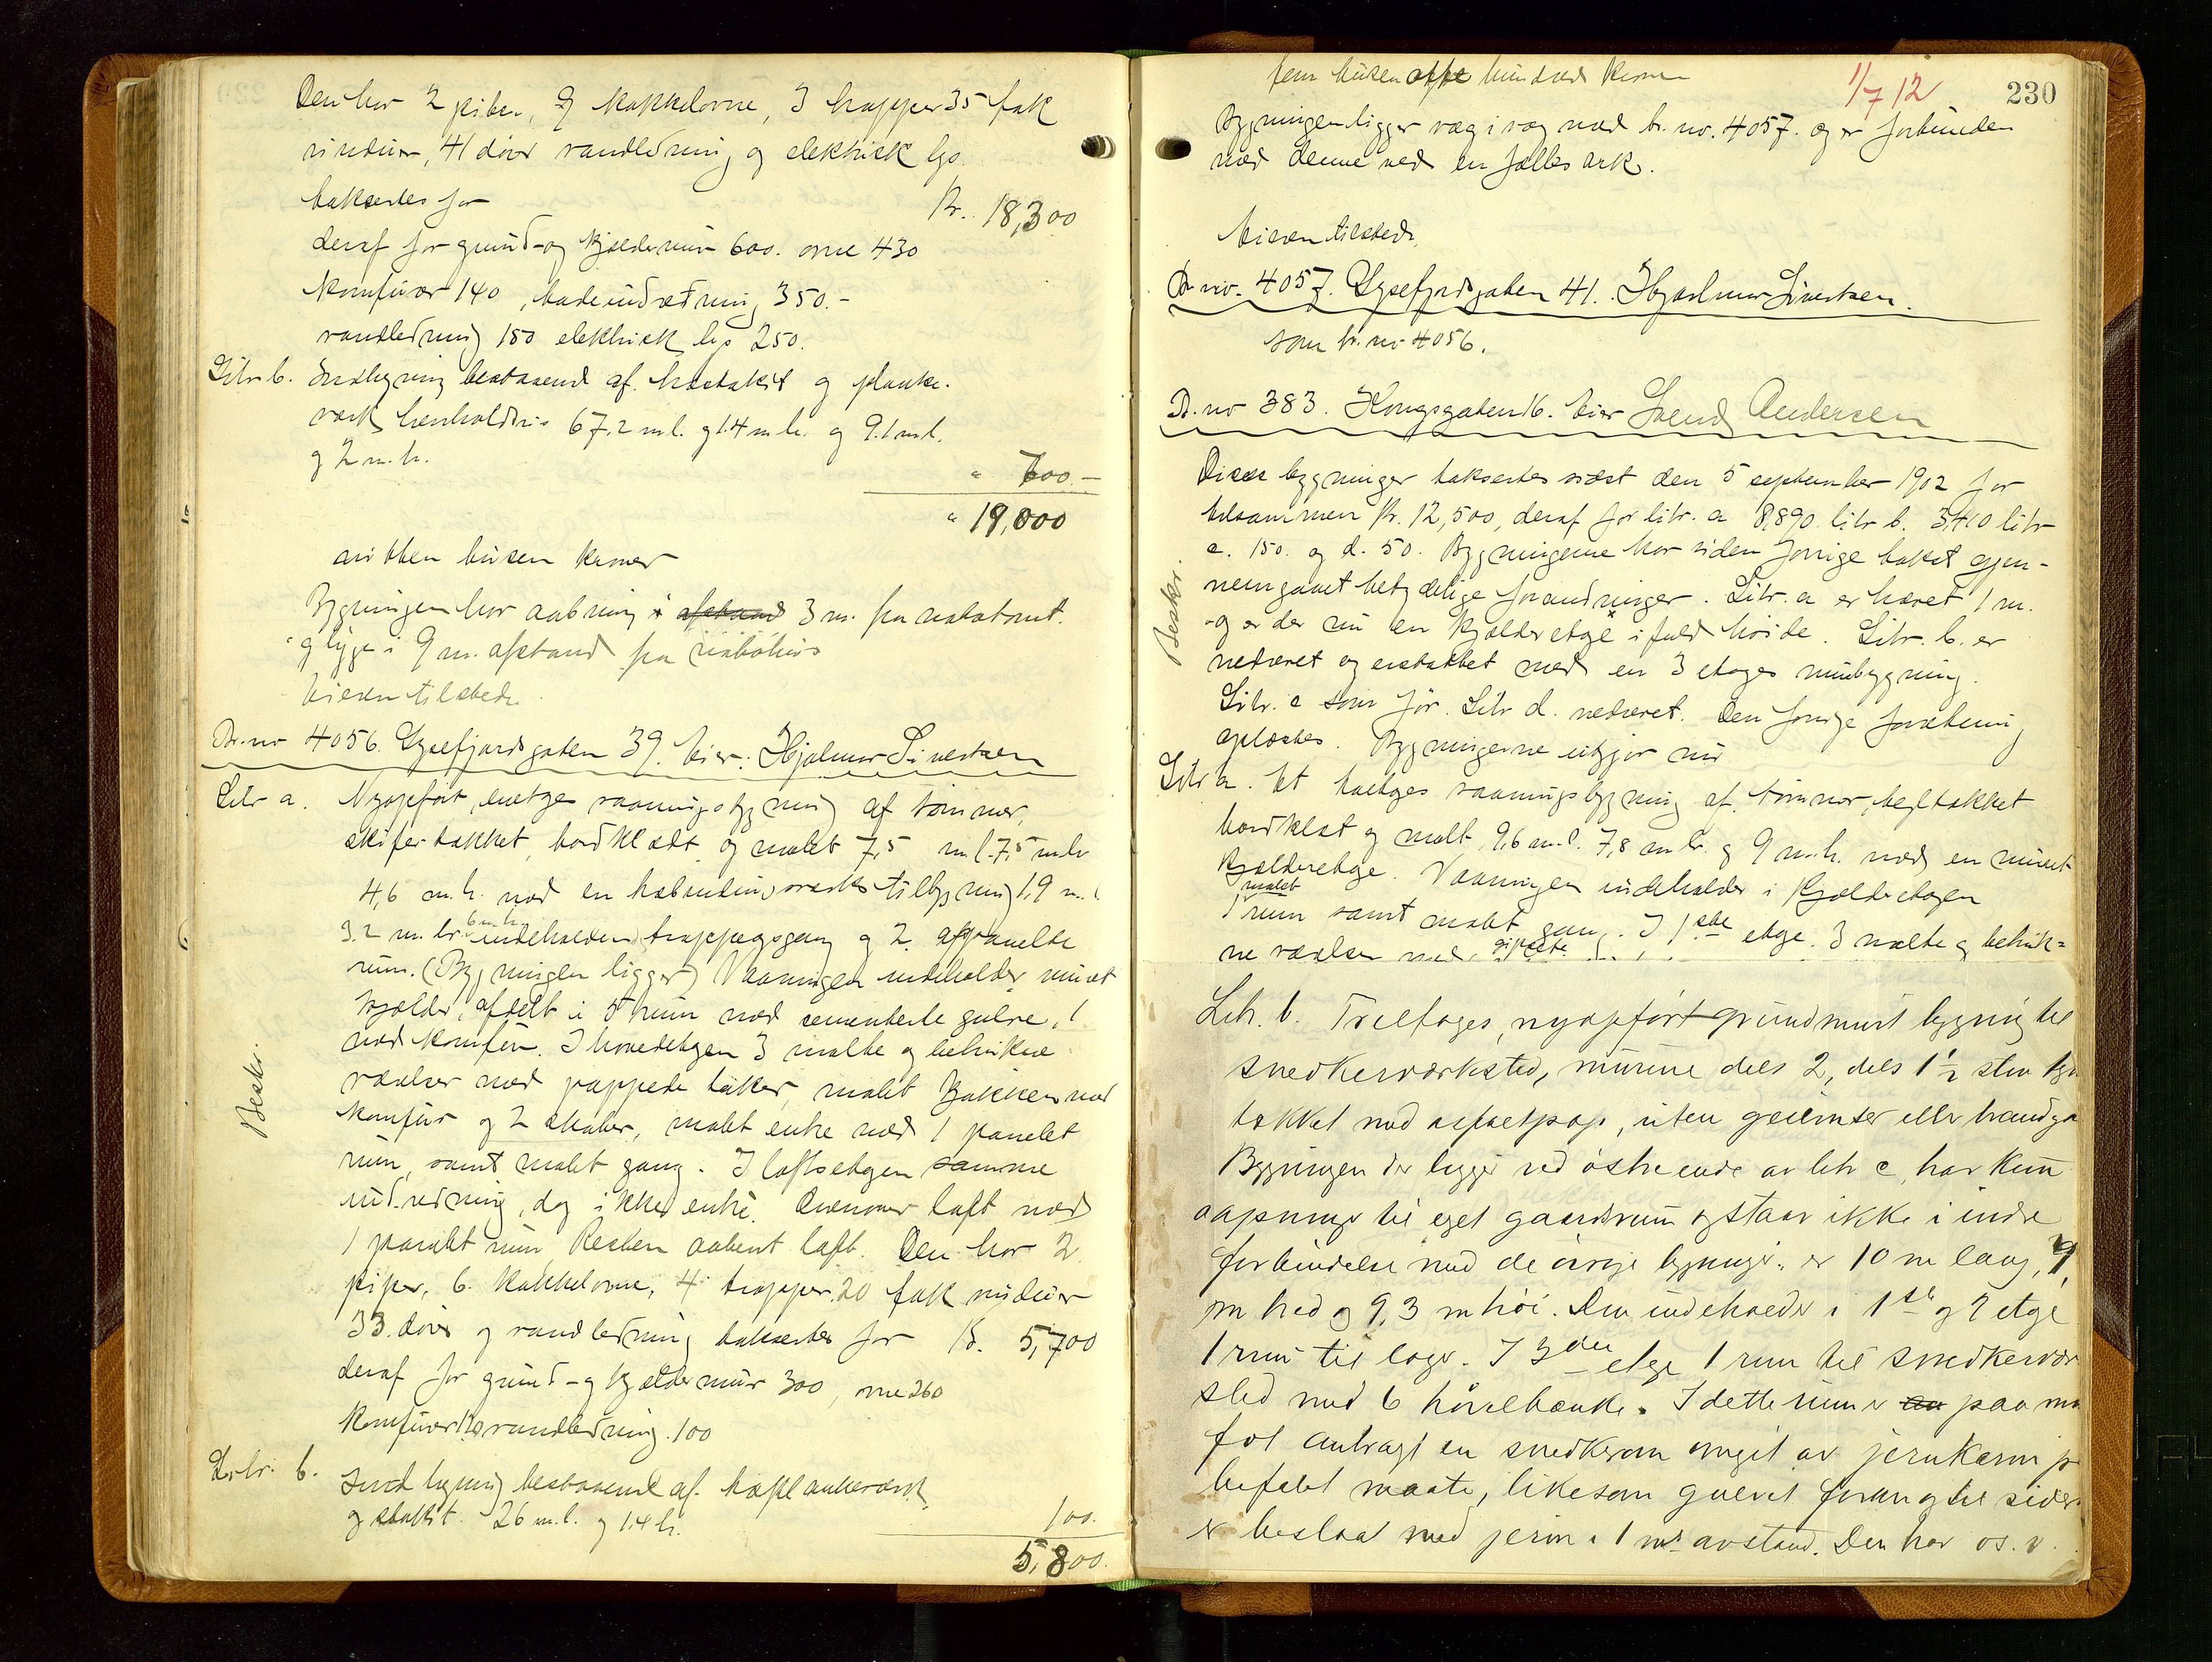 Den har 2 piber, 9 kakkelovne, 3 trapper 35 fak
vinduer, 41 döre vandledning og elektrisk lys
taksertes for Kr. 18,300
deraf for grund- og kjeldermur 600. ovne 430
komfurer 140, badeindretning 350.-
vandledning 150 elektrisk lys 250.
Litr b. Indhegning bestaaende af hagestakit og planke-
verk henholdsvis 67,2 m l. og 1.4 m h. og 9.1 m l.
og 2 m. h. " 700.-
" 19,000
nitten tusen kroner
Bygningen har aabning i afstand 3 m. fra nabotomt.
og ligger i 9 m. afstand fra nabohus
Eieren tilstede.
Br. no 4056. Lysefjordsgaten 39. Eier: Hjalmar Sivertsen
Litr a. Nyopfört, enetages vaaningsbygning af tömmer,
skifertakket, bordklædt og malet 7,5 m l. 7,5 m br
4,6 m. h. med en utbindingsverks tilbygning 1,9 m. l
3.2 m. br. 6 m h. indeholdende trappegang og 2 afpanelte
rum. (Bygningen ligger) Vaaningen indeholder muret
kjelder, afdelt i 5 rum med cementerte gulve, 1
med komfur. I hovedetagen 3 malte og betrukne
værelser med pappede taker, malet kjøkken med
komfur og 2 skaber, malet entre med 1 panelet
rum, samt malet gang. I loftsetagen samme
indredning, dog ikke entre. Ovenover loft med
1 panelt rum, Resten aabent loft. Den har 2
piper, 6 kakkelovne, 4 trapper, 20 fak vinduer
33 döre og vandledning taksertes for Kr. 5,700
deraf for grund- og kjeldermur 300, ovne 260
komfurer vandledning 100
Beskr.
Litr. b. Indhegning bestaaende af plankeverk
og stakit. 26 m. l. og 1.4 h. 100.
5,800.
230
1/7 12
fem tusen otte hundrede kroner
Bygningen ligger væg i væg med br. no. 4057. og er forbunden
med denne ved en fælles ark.
Eieren tilstede.
Br no. 4057. Lysefjordsgaten 41. Hjalmar Sivertsen.
som br. no 4056.
Br. no 383. Kongsgaten 16. Eier Svend Andersen
Disse bygninger taksertes sidst den 5 september 1902 for
tilsammen Kr. 12,500, deraf for litr. a 8,890. litr b. 3,410 litr
c. 150. og d. 50. Bygningerne har siden forrige takst gjen-
nemgaaet betydelige forandringer. Litr. a er hævet 1 m.
og er der nu en kjelderetage i fuld höide. Litr. b. er
nedrevet og erstattet med en 3 etages murbygning.
Litr. c som för. Litr d. nedrevet. Den forrige forretning
oplæstes. Bygningerne utgjør nu
Beskr.
Litr a. Et toetages vaaningsbygning af tömmer, tegltakket
bordklæt og malt, 9,6 m. l. 7,8 m br. og 9 m. h. med en muret
kjelderetage. Vaaningen indeholder i kjelderetagen
1 malet rum samt malet gang. I 1ste etage 3 malte og betruk-
ne værelser med gipsete
Litr. b. Treetages, nyopfört grundmurt bygning til
snedkerværksted, murene dels 2, dels 1½ sten tyk
takket med asfaltpap, uten gesimser eller brandga
Bygningen der ligger ved östre ende av litr c, har kun
aapninger til eget gaardsrum og staar ikke i indre
forbindelse med de övrige bygninger. er 10 m lang, 9,
m bred og 9,3 m höi. Den indeholder i 1ste og 2 etage
1 rum til lager. I 3die etage 1 rum til snedkervær
sted med 6 hövelbænke. I dette rum er en paa mu
fot anbragt en snedkerovn omgit av jernkarm p
befalet maate, likesom gulvet foran og til siden
er beslaat med jern i 1 m's avstand. Den har o.s.v.